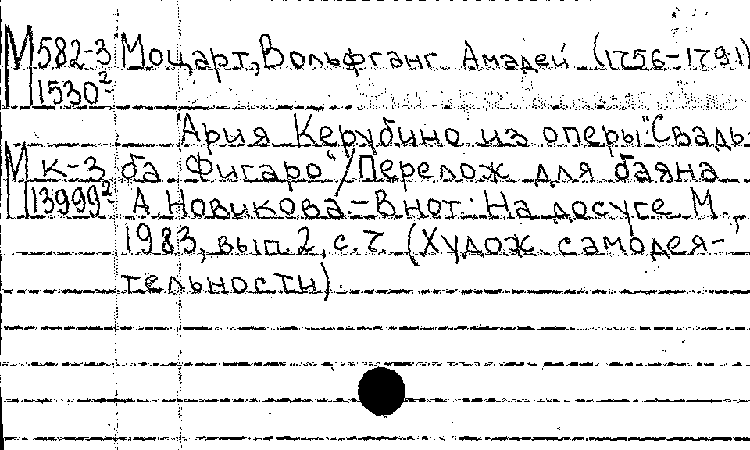 М 582-3 Моцарт, Вольфганг Амадей (1756-1791)
1530²
Ария Керубино из оперы "Свадь-
М к-3 ба Фигаро"/Перелож для баяна
13999² А. Новикова – В нот: На досуге М.,
1983, вып. 2, с. 7 (Худож. самодея-
тельности).